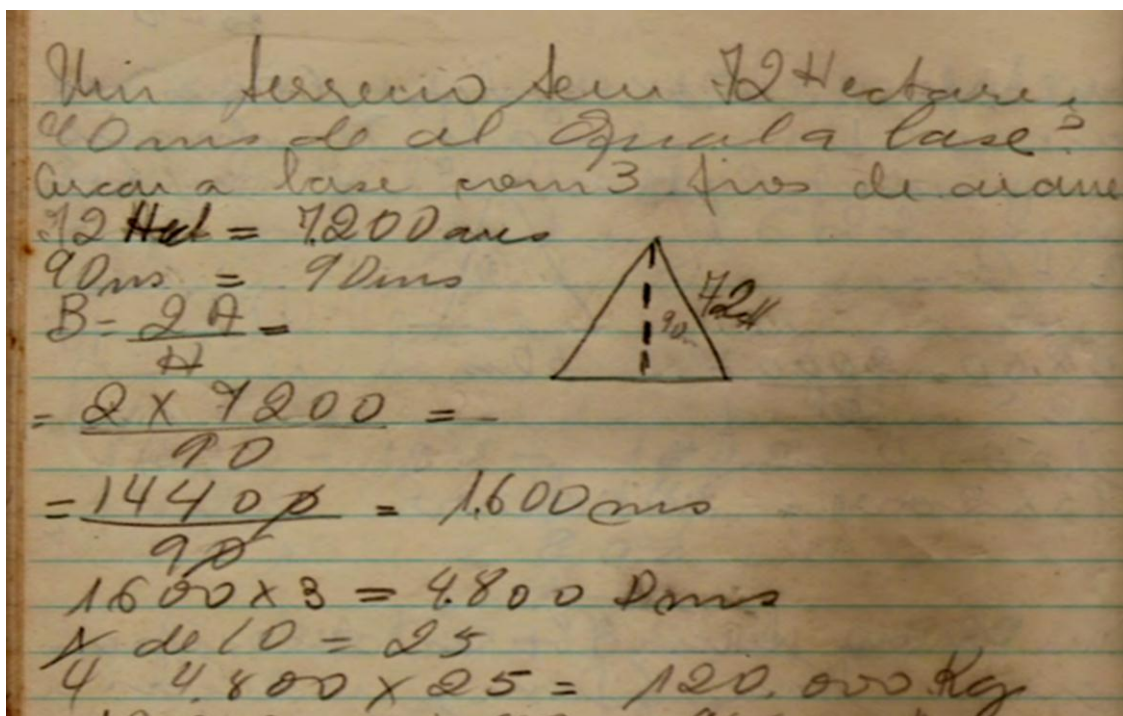 Um terreno tem 72 Hectare,
90 ms de al Qual a base?
Cercar a base com 3 fios de arame
72 Hect = 7.200 ares
90 ms = 9 Dms
B = 2 A =
H
72 H
90 m
= 2 x 7200 =
90
= 14400 = 1.600 Dms
90
1600 x 3 = 4.800 Dms
1 de 10 = 25
4 4.800 x 25 = 120.000 Kg